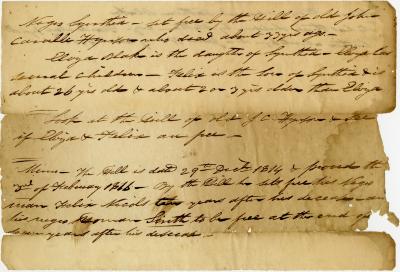 Negro Synthia - set free by the Will of old John
Carville Hynson who died about 33 yrs ago -
Eliza Blake is the daughter of Synthia - Eliza has
several children - Felix is the son of Synthia & is
about 26 yrs old & about 2 or 3 yrs older than Eliza
Look at the Will of old J. C. Hynson & see
if Eliza & Felix are free -
Memo - The Will is dated 29th Decr. 1814 & proved the
2nd of February 1816 - By the Will he sets free his Negro
man Felix Nicols two years after his decease and
his negro Woman Sinth to be free at the end of
years after his decease -